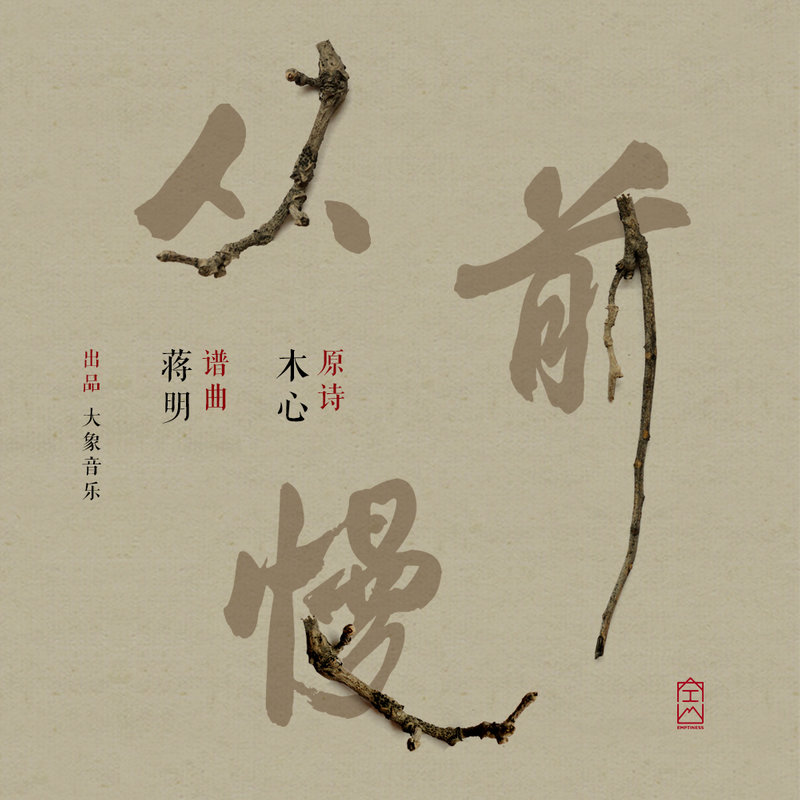 从
前
慢
原诗
木心
谱曲
蒋明
出品 大象音乐
空山
EMPTINESS